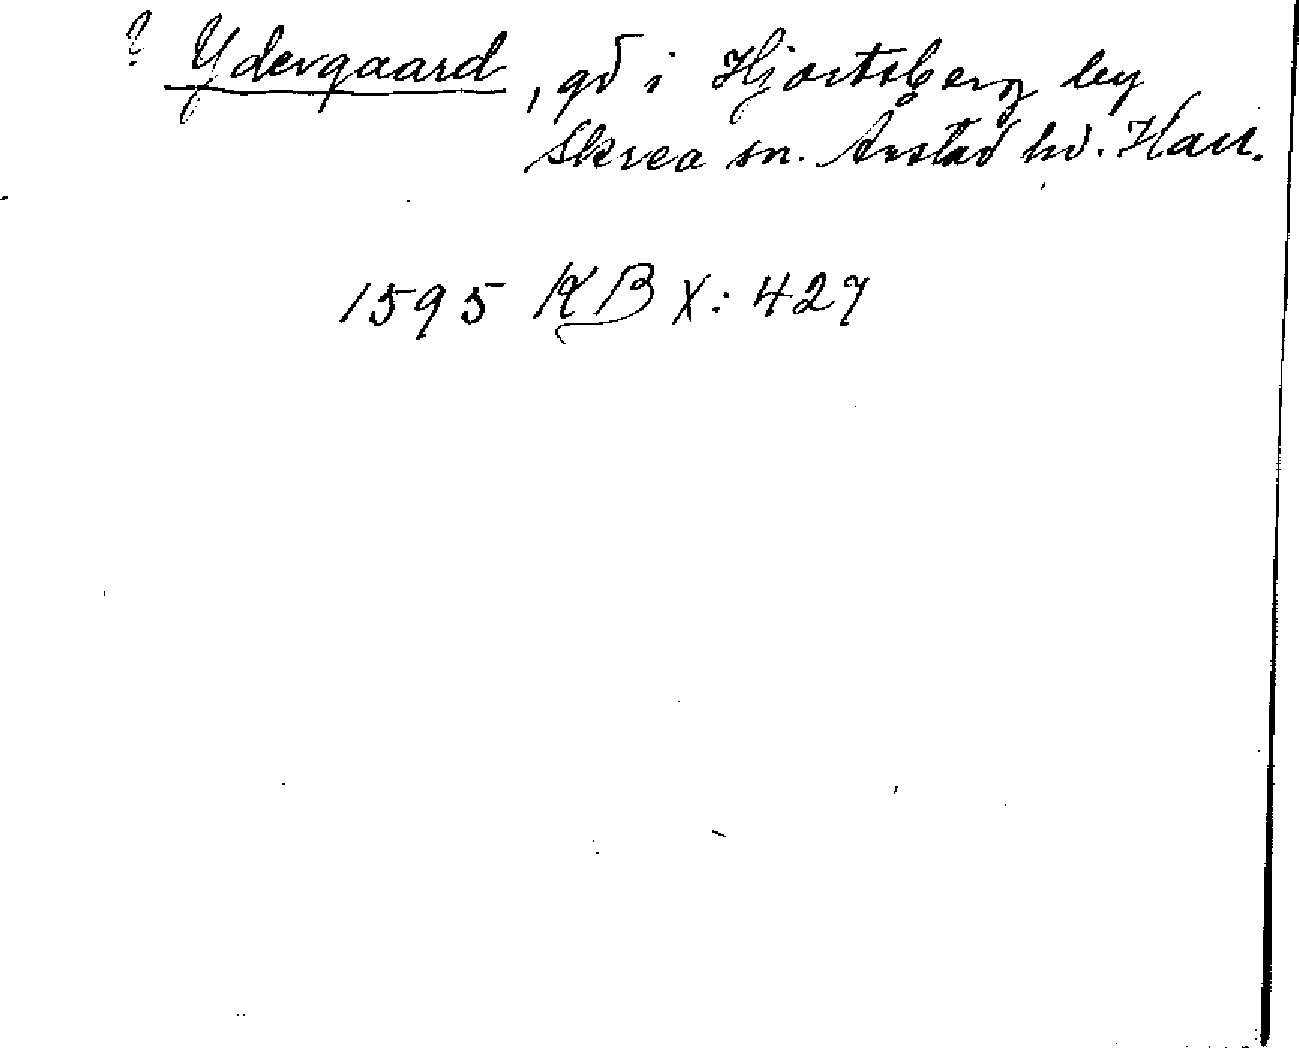 ? Ydergaard, gd i Hjortsberg by
Skrea sn. Årstad hd. Hall.
1595 KB X: 427